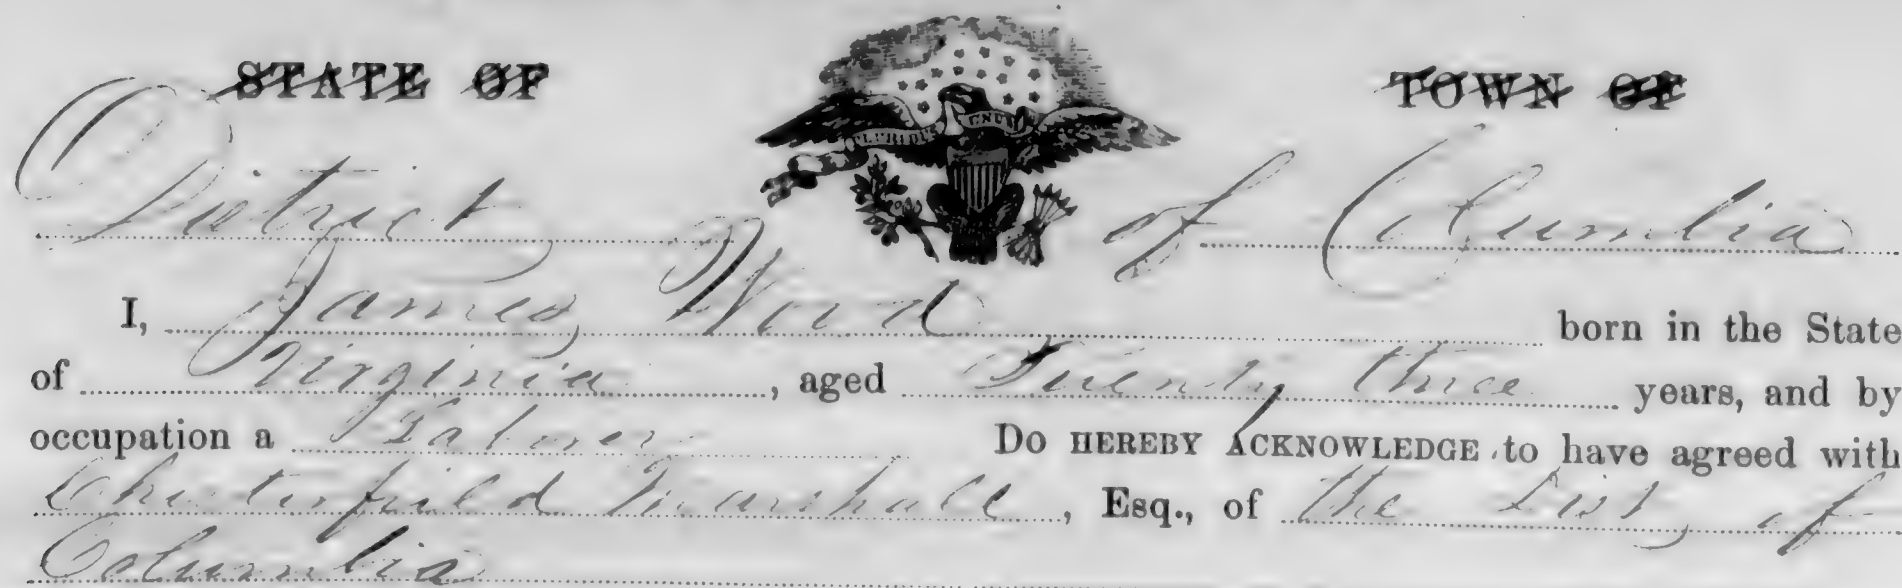 STATE OF TOWN OF
PLURIBUS UNUM
District of Columbia
I, James Wood born in the State
of Virginia, aged Twenty three years, and by
occupation a Do HEREBY ACKNOWLEDGE to have agreed with
Chesterfield Marshall, Esq., of the Dist, of
Columbia